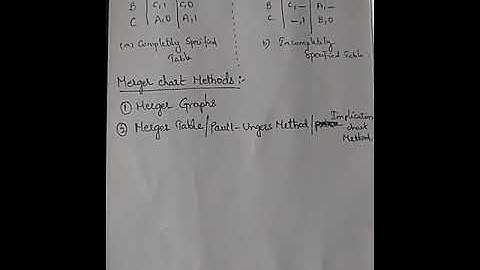 B | C,1 | C,0
C | A,0 | A,1
B | C,– | A,–
C | –,1 | B,0
(a) Completely Specified
Table
b) Incompletely
Specified Table
Merger chart Methods :-
① Merger Graphs
② Merger Table/Paull-Ungers Method/
Implication
chart
Method.